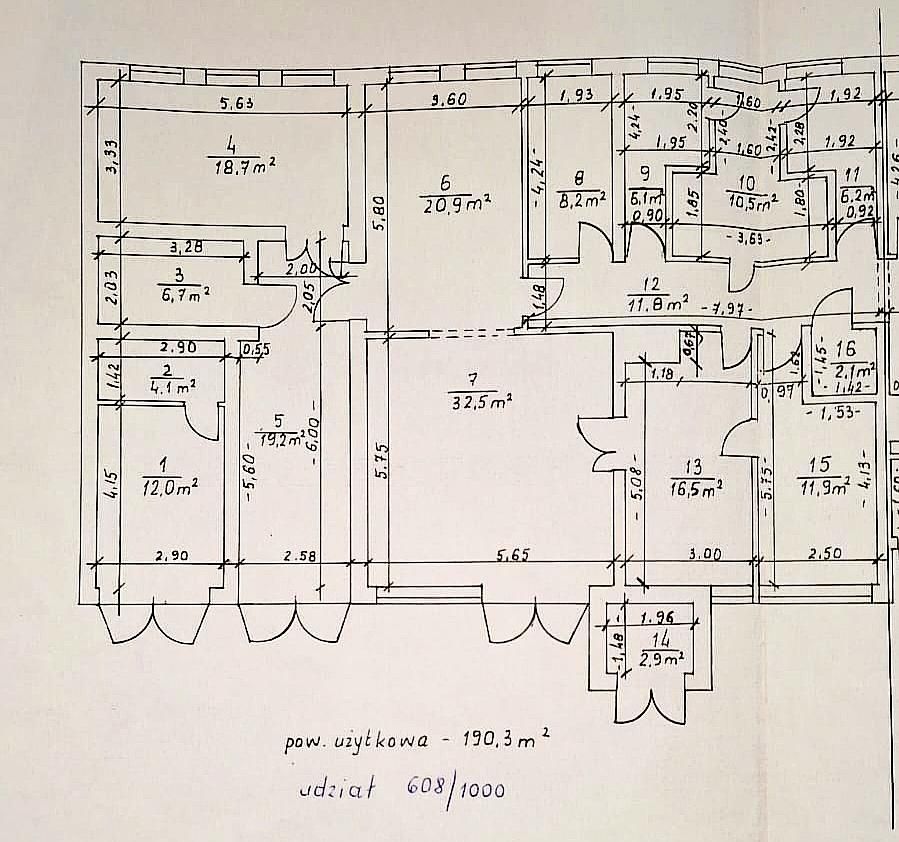 5,63
3,60
1,93
1,95
1,60
1,92
3,33
4
18,7 m²
5,80
6
20,9 m²
-4,24-
8
8,2 m²
4,24-
2,20
1,95
-2,40-
1,60
-2,42-
2,28
1,92
9
6,1 m²
0,90
1,85
10
10,5 m²
1,80-
11
6,2 m
0,92
-3,63-
4,26-
3,28
3
6,7 m²
2,03
2,00
2,05
1,48
12
11,8 m²
-7,97-
2,90
0,55
2
4.1 m²
1,42
5
19,2 m²
-5,60-
-6,00-
7
32,5 m²
5.75
0,67
1.18
1,62
0,97
-1,45-
16
2.1 m²
-1,42-
-1,53-
1
12,0 m²
4,15
13
16,5 m²
-5,08-
-5,75-
15
11,9 m²
-4,13-
2,90
2.58
5,65
3.00
2.50
1.96
14
2,9 m²
-1,48-
pow. użytkowa - 190,3 m²
udział 608/1000